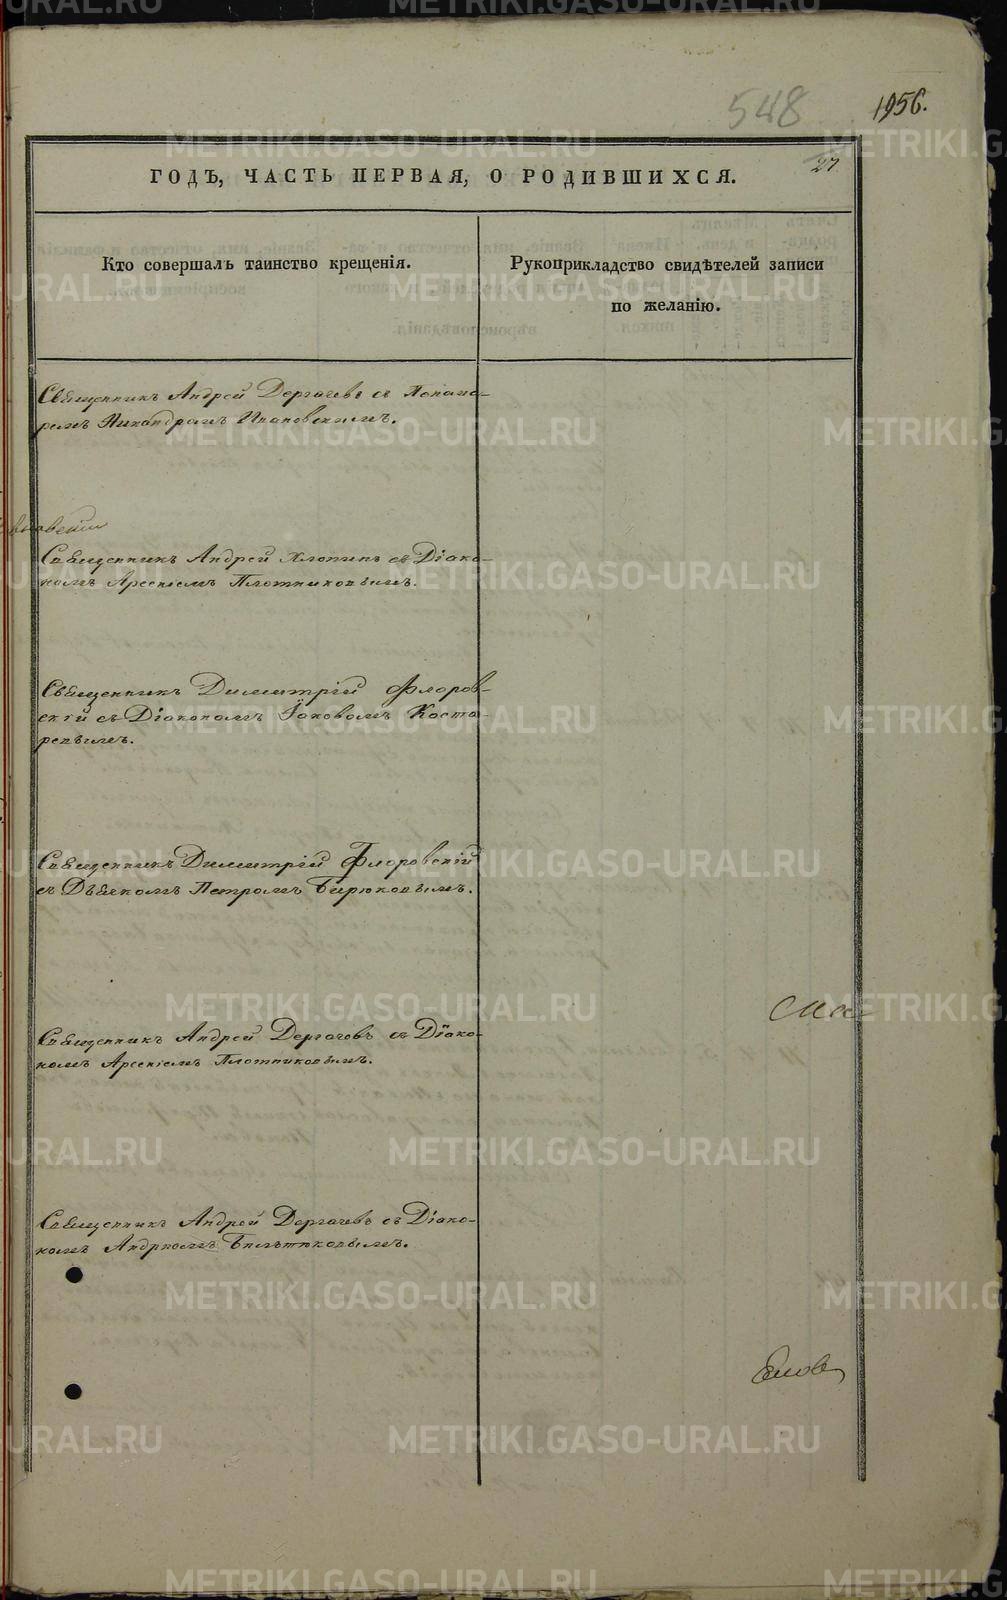 548
1956.
27
ГОДЪ, ЧАСТЬ ПЕРВАЯ, О РОДИВШИХСЯ.
Кто совершалъ таинство крещенія.
Рукоприкладство свидѣтелей записи
по желанію.
Священникъ Андрей Дергачевъ съ Понама-
ремъ Никандромъ
Священникъ Андрей Хлопинъ съ Діако-
номъ Арсеніемъ Плотниковымъ.
Священникъ Димитрій Флоров-
скій съ Діакономъ Іаковомъ Коста-
ревымъ.
Священникъ Димитрій Флоровскій
съ Дьякомъ Петромъ Бирюковымъ.
Священникъ Андрей Дергачевъ съ Діако-
номъ Арсеніемъ Плотниковымъ.
Священникъ Андрей Дергачевъ съ Діако-
номъ
METRIKI.GASO-URAL.RU